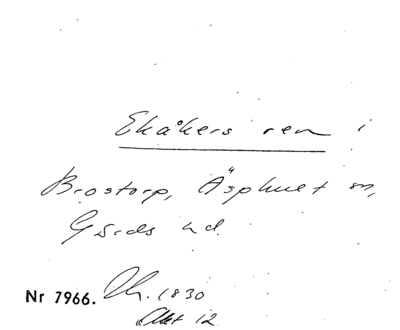 Ekåkers ren i
Brostorp, Äsphult sn,
Gärds hd.
Nr 7966. 1830
Akt 12